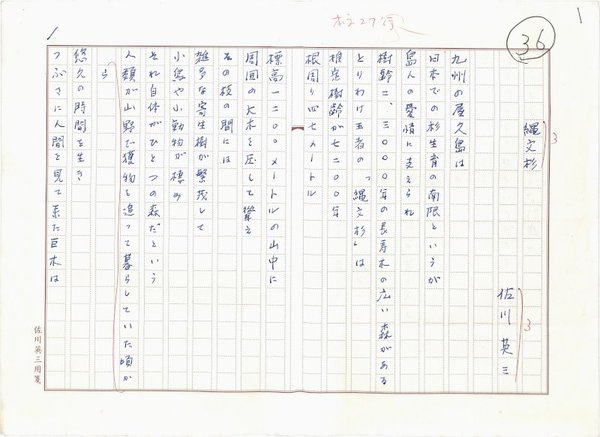 本文27行
36
1
縄文杉
3
佐川英三
3
九州の屋久島は
日本での杉生育の南限というが
島人の愛情に支えられ
樹齢二、三〇〇〇年の長寿木の広い森がある
とりわけ王者の「縄文杉」は
推定樹齢が七二〇〇年
根周り四七メートル
標高一三〇〇メートルの山中に
周囲の大木を圧して聳え
その枝の間には
雑多な寄生樹が繁茂して
小鳥や小動物が棲み
それ自体がひとつの森だという
人類が山野で獲物を追って暮らしていた頃か
ら
悠久の時間を生き
つぶさに人間を見て来た巨木は
佐川英三用箋